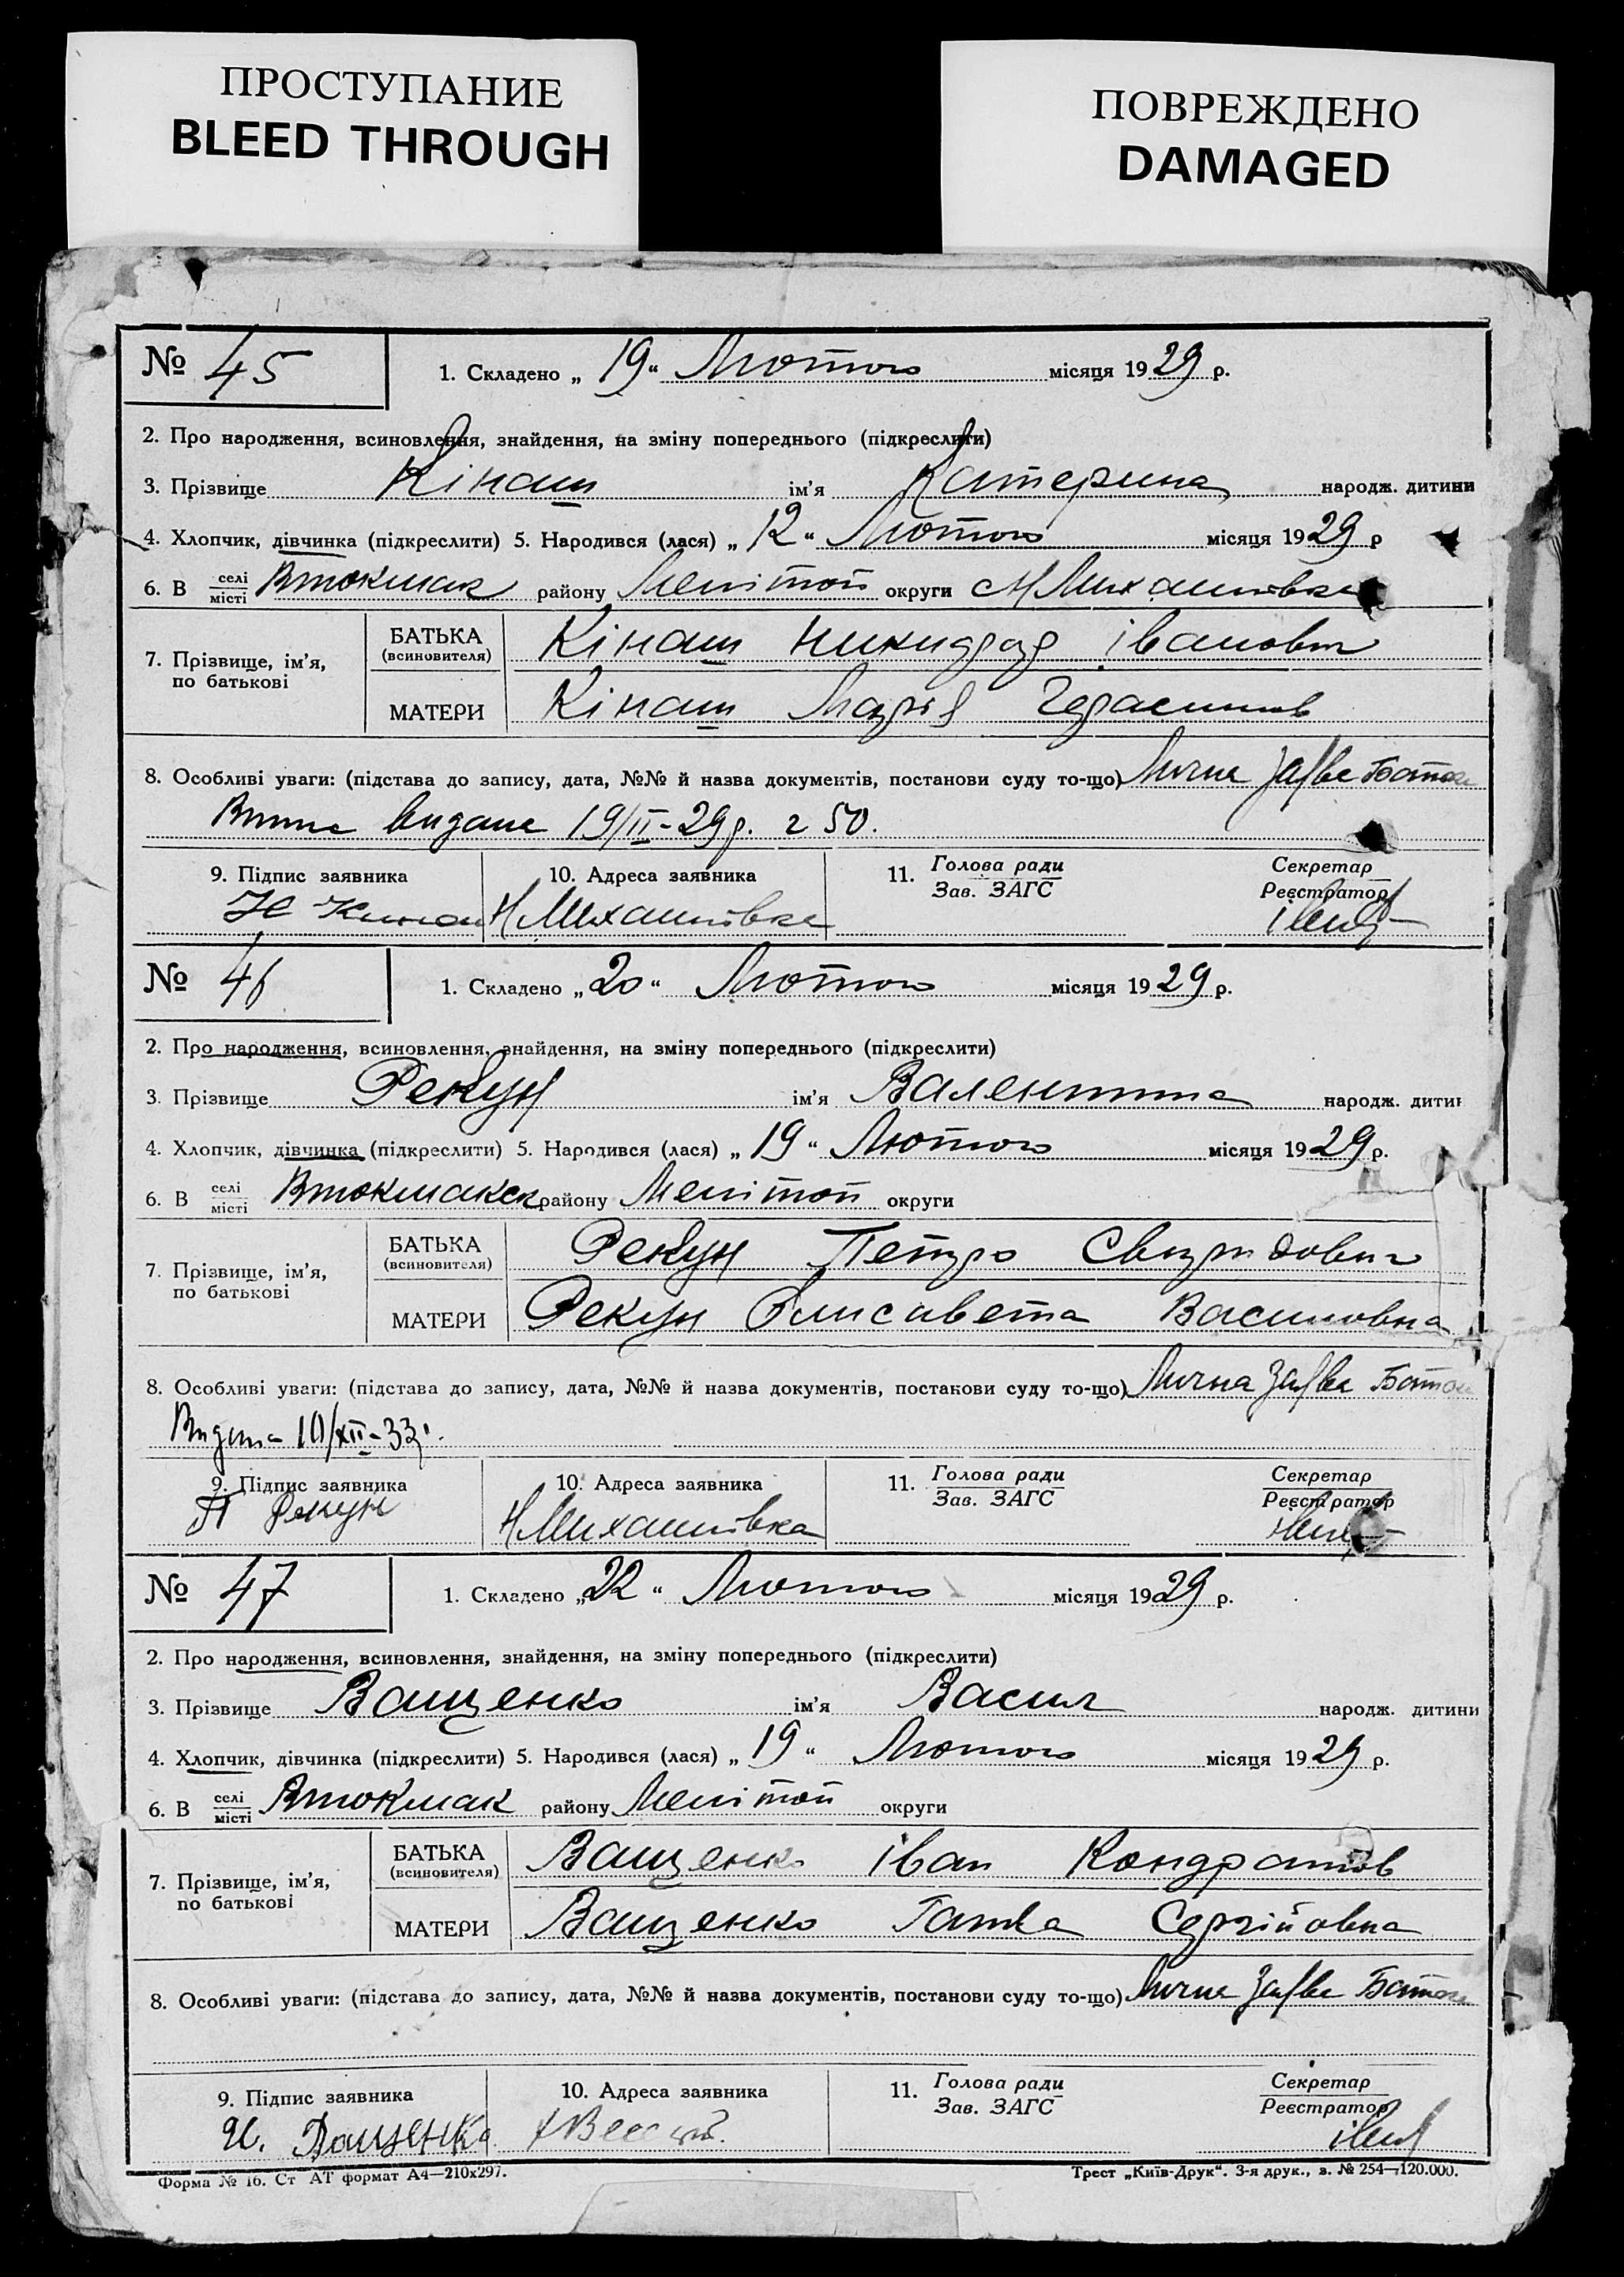 ПРОСТУПАНИЕ
BLEED THROUGH
ПОВРЕЖДЕНО
DAMAGED
№ 45 1. Складено „19“ Лютого місяця 1929 р.
2. Про народження, всиновлення, знайдення, на зміну попереднього (підкреслити)
3. Прізвище Кінаш ім'я Катерина народж. дитини
4. Хлопчик, дівчинка (підкреслити) 5. Народився (лася) „12“ Лютого місяця 1929 р
6. В селі місті Втокмак району Мелітоп округи Н Михайлівка
7. Прізвище, ім'я, по батькові
БАТЬКА (всиновителя) Кінаш Никидрар Іванович
МАТЕРИ Кінаш Марія Герасимов
8. Особливі уваги: (підстава до запису, дата, №№ й назва документів, постанови суду то-що) Лична Заява Батька
видане 19/II-29р. 2 50.
9. Підпис заявника 10. Адреса заявника 11. Голова ради Зав. ЗАГС Секретар Реєстратор
Н Кинаш Н Михайлівка
№ 46 1. Складено „20“ Лютого місяця 1929 р.
2. Про народження, всиновлення, знайдення, на зміну попереднього (підкреслити)
3. Прізвище Рекун ім'я Валентина народж. дитин
4. Хлопчик, дівчинка (підкреслити) 5. Народився (лася) „19“ Лютого місяця 1929 р.
6. В селі місті Втокмакск району Мелітоп округи
7. Прізвище, ім'я, по батькові
БАТЬКА (всиновителя) Рекун Петро Свиридович
МАТЕРИ Рекун Єлисавета Василовна
8. Особливі уваги: (підстава до запису, дата, №№ й назва документів, постанови суду то-що) Лична Заява Батька
Видана 10/XII-33р.
9. Підпис заявника 10. Адреса заявника 11. Голова ради Зав. ЗАГС Секретар Реєстратор
П Рекун Н Михайлівка
№ 47 1. Складено „22“ Лютого місяця 1929 р.
2. Про народження, всиновлення, знайдення, на зміну попереднього (підкреслити)
3. Прізвище Ващенко ім'я Васил народж. дитини
4. Хлопчик, дівчинка (підкреслити) 5. Народився (лася) „19“ Лютого місяця 1929 р.
6. В селі місті Втокмак району Мелітоп округи
7. Прізвище, ім'я, по батькові
БАТЬКА (всиновителя) Ващенко Іван Кондратов
МАТЕРИ Ващенко Ганна Сергійовна
8. Особливі уваги: (підстава до запису, дата, №№ й назва документів, постанови суду то-що) Лична Заява Батька
9. Підпис заявника 10. Адреса заявника 11. Голова ради Зав. ЗАГС Секретар Реєстратор
И. Ващенка
Форма № 16. Ст АТ формат А4—210х297. Трест „Київ-Друк“. 3-я друк., в. № 254—120.000.